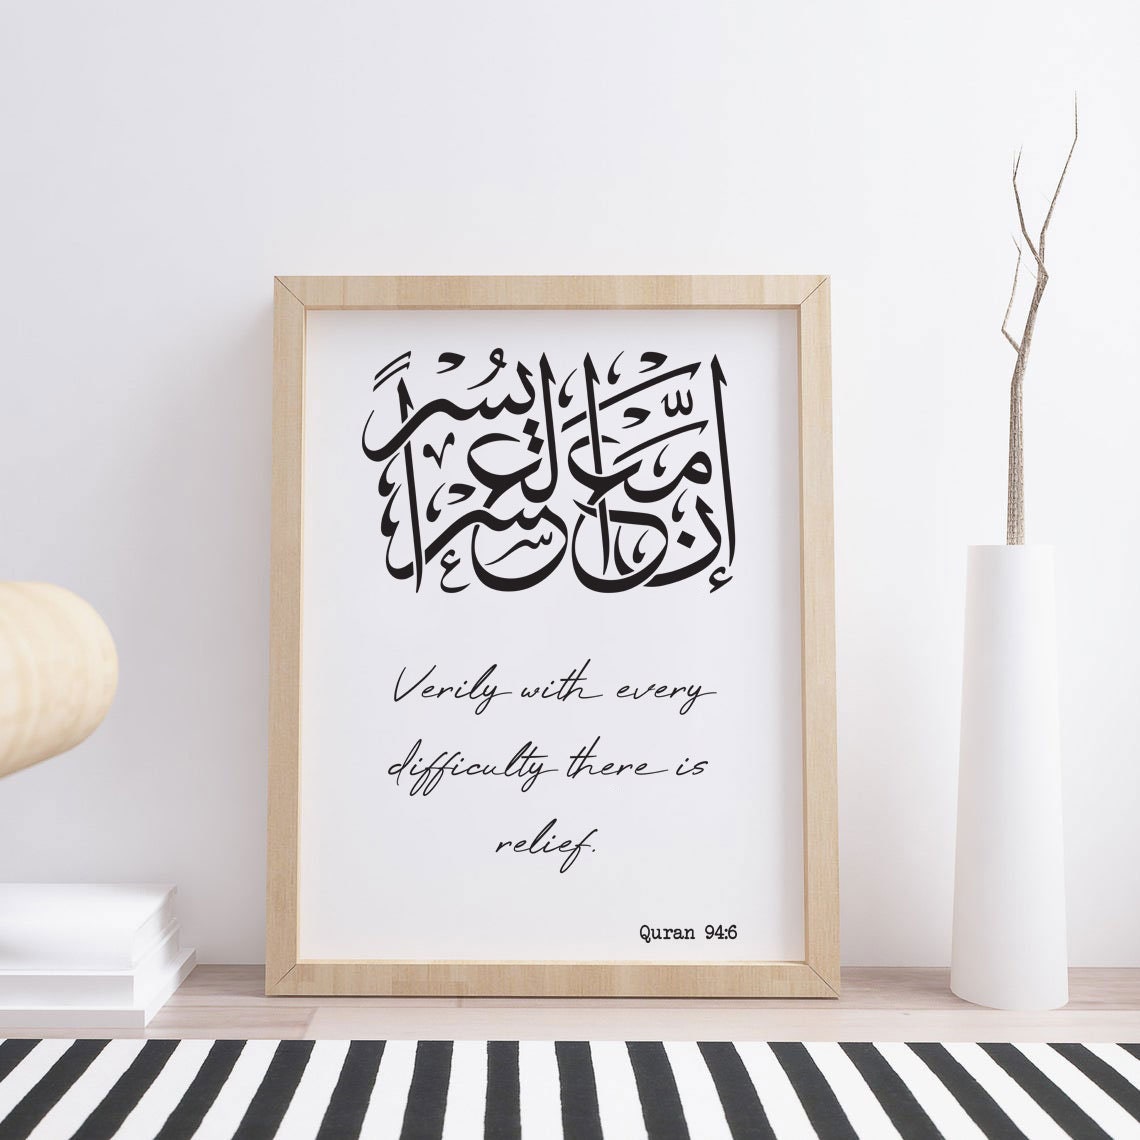 إنّ مَعَ العسر يُسراً
Verily with every
difficulty there is
relief.
Quran 94:6